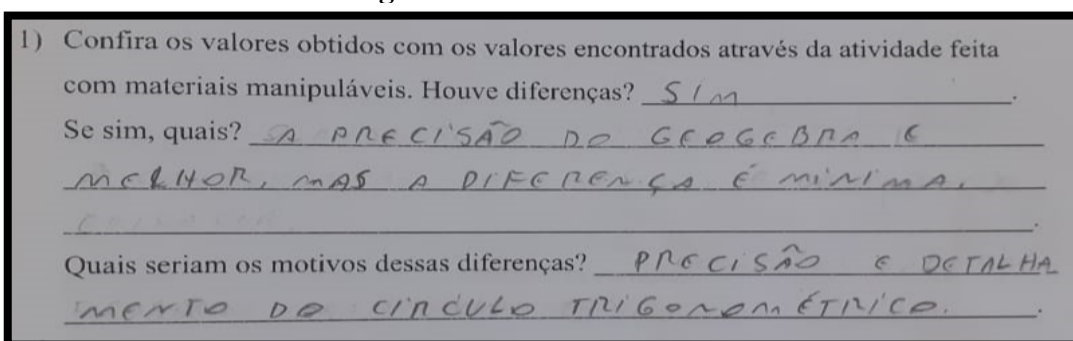 1) Confira os valores obtidos com os valores encontrados através da atividade feita
com materiais manipuláveis. Houve diferenças? SIM.
Se sim, quais? A PRECISÃO DO GEOGEBRA É
MELHOR, MAS A DIFERENÇA É MINIMA.
Quais seriam os motivos dessas diferenças? PRECISÃO E DETALHA
MENTO DO CÍRCULO TRIGONOMÉTRICO.